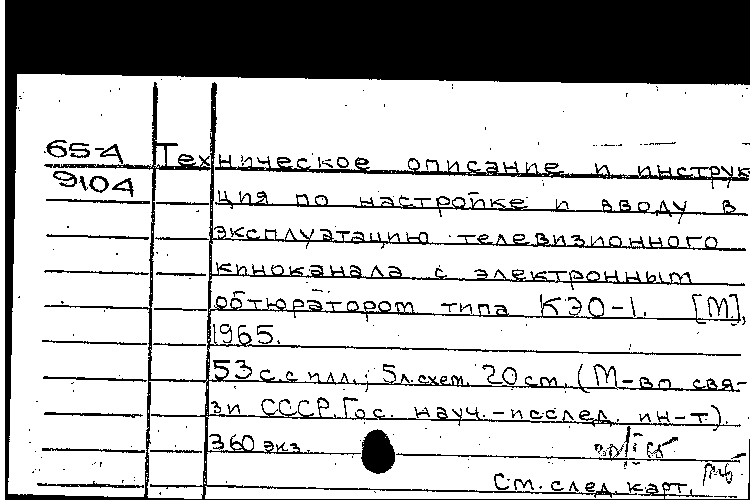 65-4 Техническое описание и инструк
9104 ция по настройке и вводу в
эксплуатацию телевизионного
киноканала с электронным
обтюратором типа КЭО-1. [М],
1965.
53 с. с илл.; 5 л. схем. 20 см. (М-во свя-
зи СССР. Гос. науч.-исслед. ин-т).
360 экз.
См. след. карт.